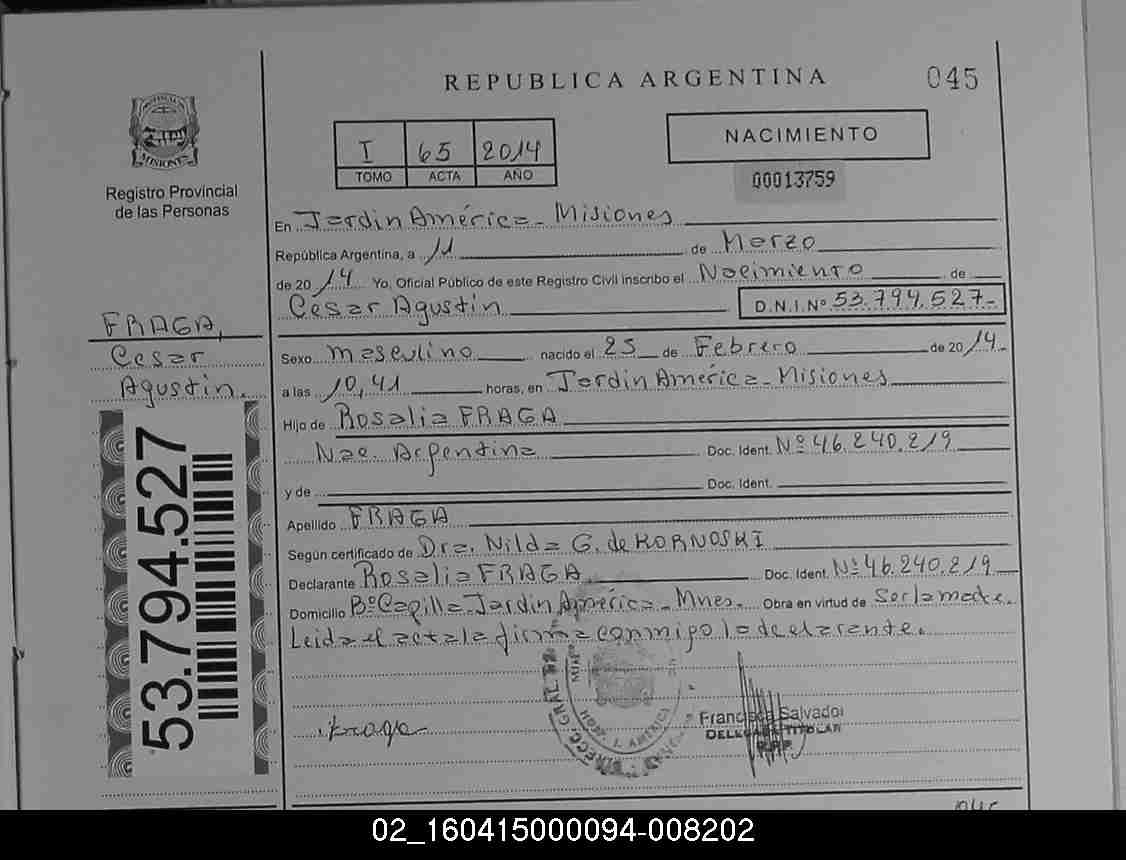 REPUBLICA ARGENTINA
045
I 65 2014
TOMO ACTA AÑO
NACIMIENTO
00013759
MISIONES
Registro Provincial
de las Personas
En Jardin América - Misiones
República Argentina, a 11 de Marzo
de 20 14 Yo, Oficial Público de este Registro Civil inscribo el Nacimiento de
Cesar Agustin D.N.I.Nº 53.794.527-
FRAGA,
Cesar
Agustin.
53.794.527
Sexo masculino nacido el 25 de Febrero de 20 14.
a las 10,41 horas, en Jardin América - Misiones
Hijo de Rosalia FRAGA
Nac. Argentina Doc. Ident. Nº 46.240.219
y de Doc. Ident.
Apellido FRAGA
Según certificado de Dra. Nilda G. de KORNOSKI
Declarante Rosalia FRAGA Doc. Ident. Nº 46.240.219
Domicilio Bº Capilla - Jardin América - Mnes. Obra en virtud de Ser la madre.
Leida el acta la firma conmigo la declarante.
Fraga
J. AMERICA
Francisca Salvador
DELEGADA TITULAR
R.P.P.
02_160415000094-008202